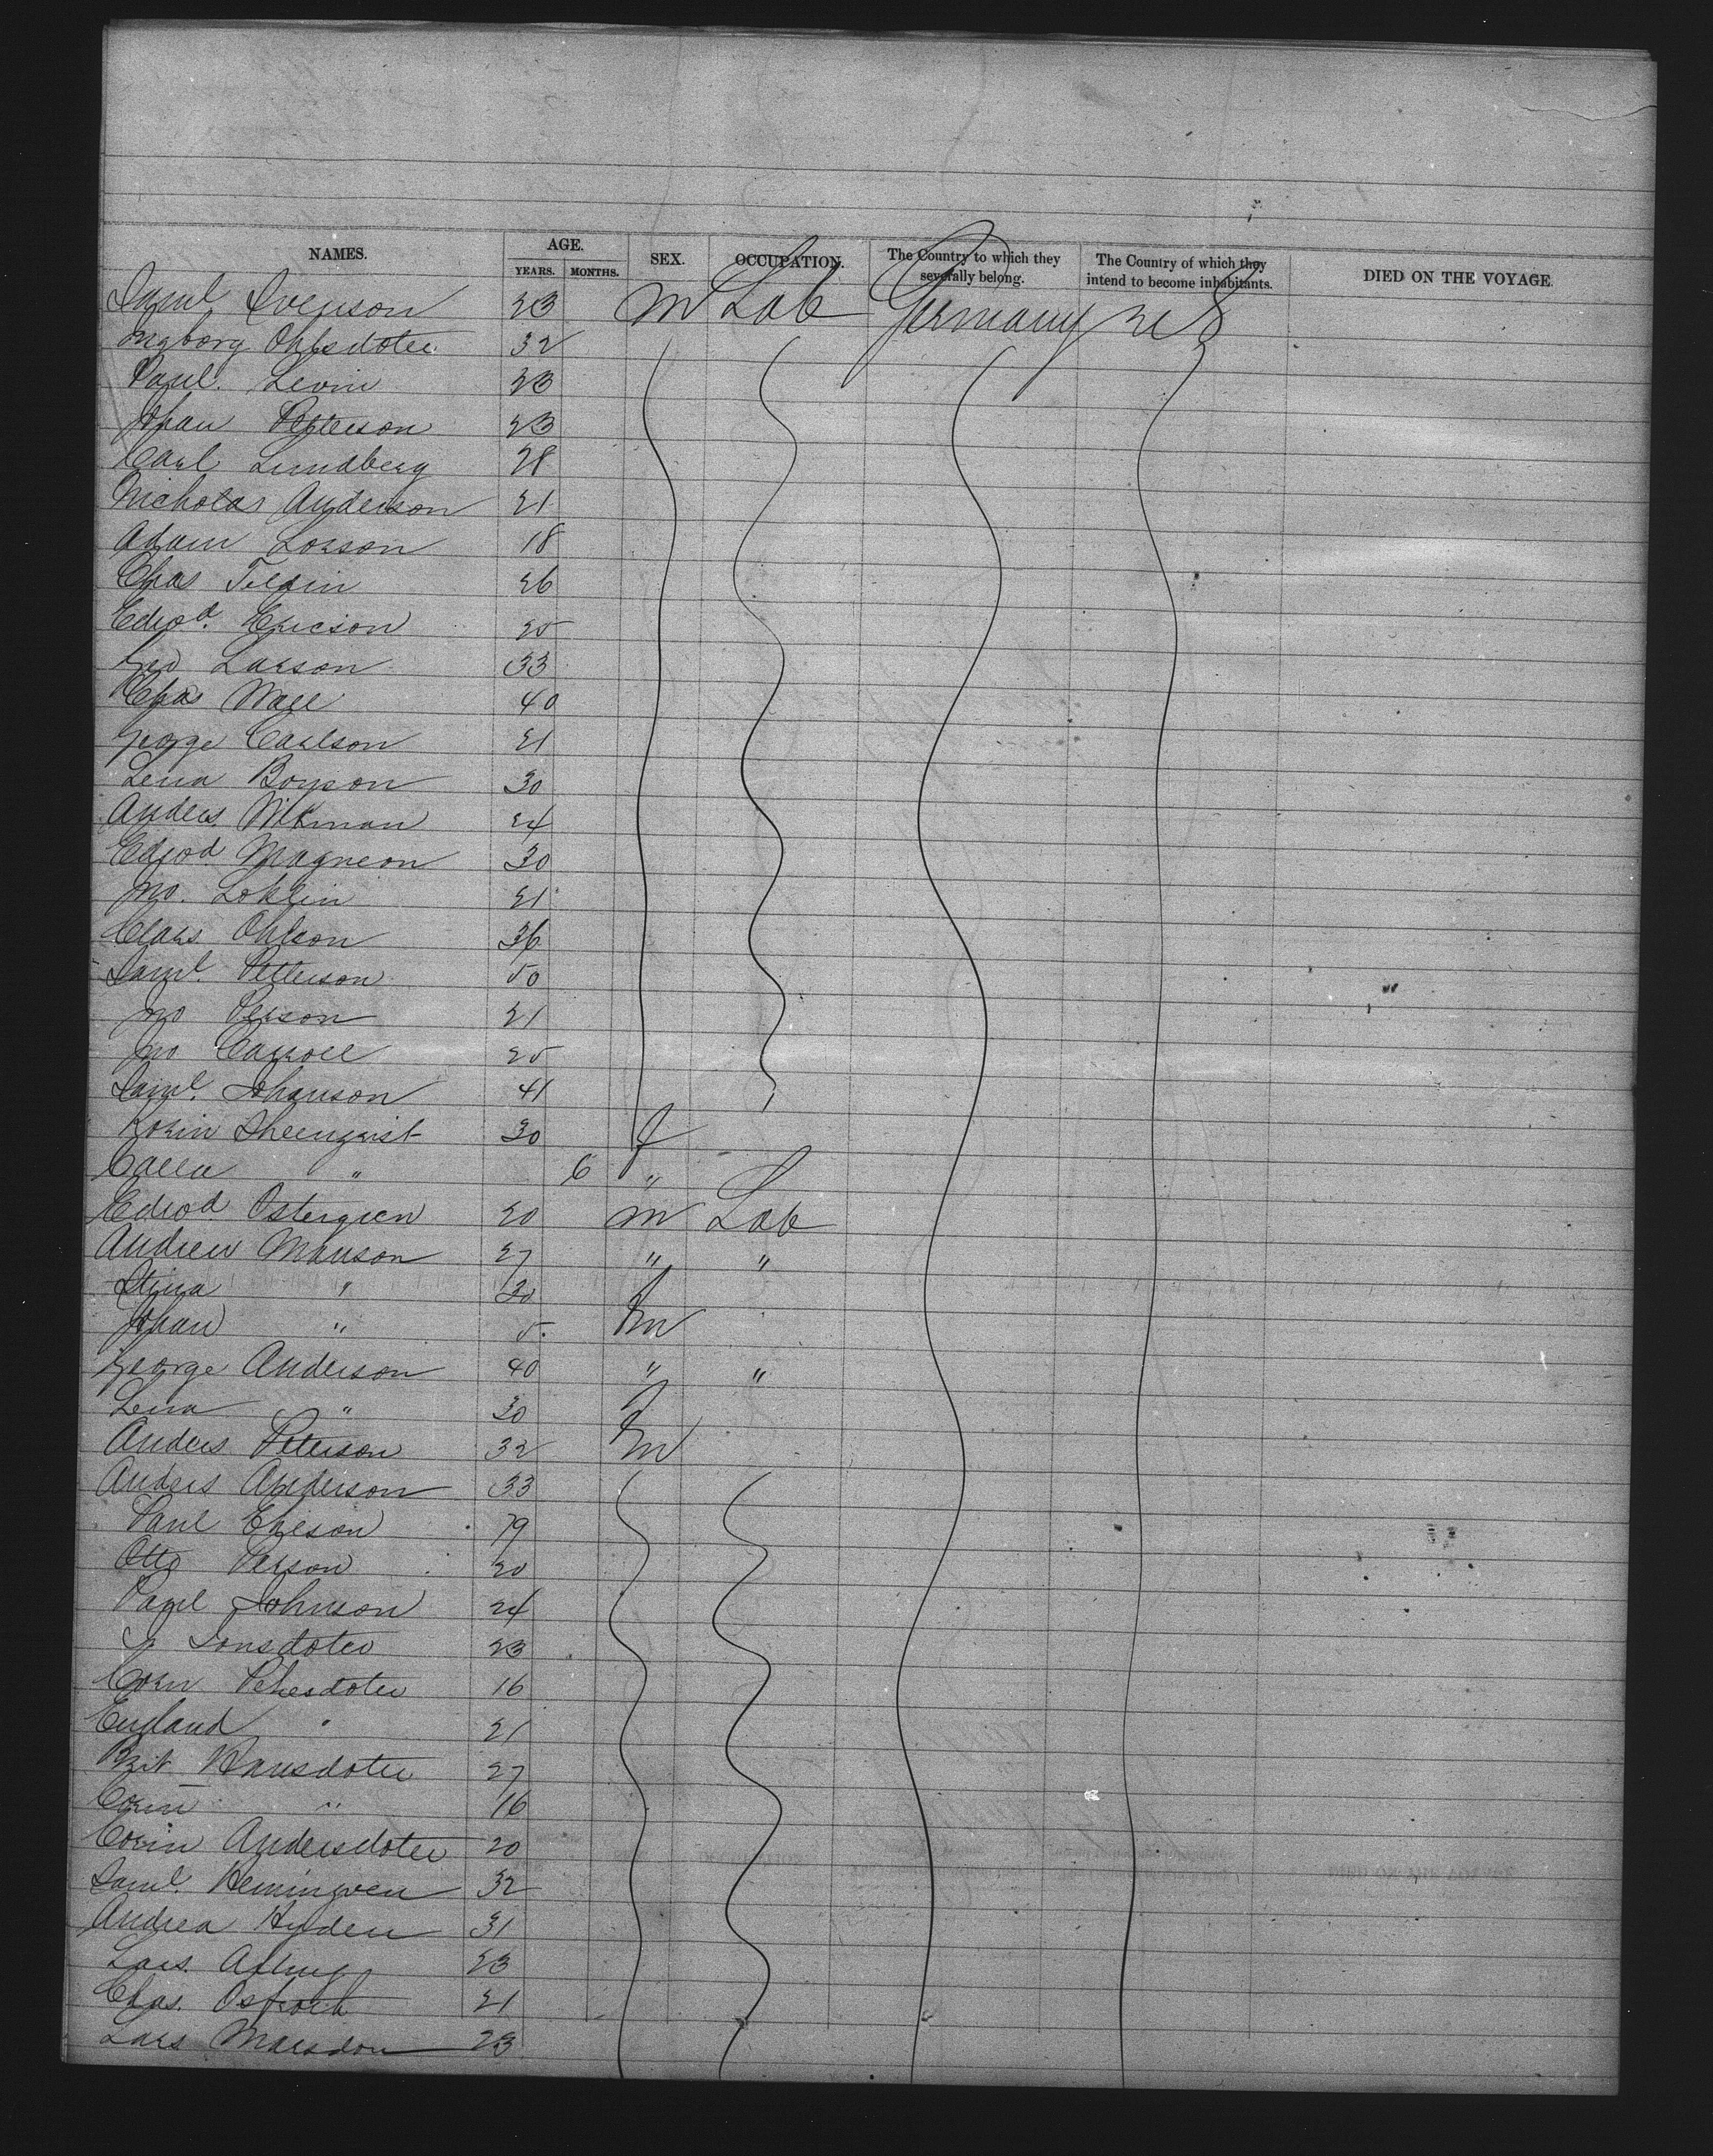 NAMES. AGE. SEX. OCCUPATION. The Country to which they severally belong. The Country of which they intend to become inhabitants. DIED ON THE VOYAGE.
YEARS. MONTHS.
Saml Svenson 23 M Lab Germany U S
Ingborg Ohlsdoter 32
Paul Levin 23
Johan Petterson 23
Carl Lundberg 28
Nicholas Anderson 21
Adam Lorson 18
Chas 26
Edwd. Ericson 25
Geo Larson 33
Chas Wall 40
George Carlson 21
Lena Boyson 30
Anders Wikman 24
Edwd Magneson 30
Jno. 21
Claes Ohlson 36
Saml. Petterson 50
Jno Person 21
Jno Carroll 25
Saml. Johanson 41
Korin 30 f
Calla " 6 "
Edwd. Ostergren 20 m Lab
Andrew Manson 27 " "
Stina " 30 f
Johan " 5. m
George Anderson 40 " "
Lena " 30 f
Anders Peterson 32 m
Anders Anderson 33
Paul 19
Otto Person 20
Paul Johnson 24
Jonsdoter 23
Corin Pehrsdoter 16
England " 21
Brit Hansdoter 27
Corin " 16
Corin Andersdoter 20
Saml. 32
Andrea Hyden 31
Lars. 23
Chas. 21
Lars 23